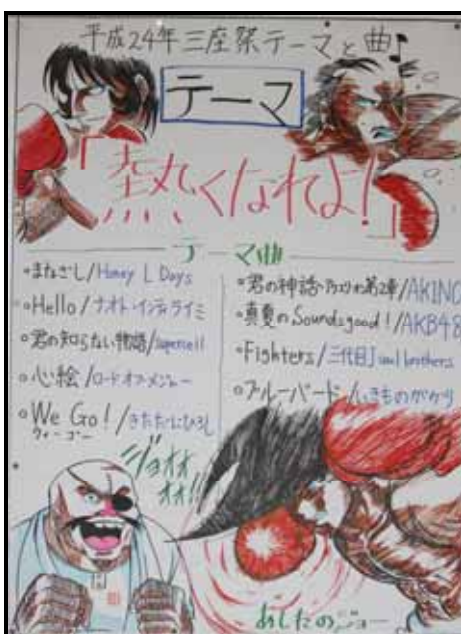 平成24年三座祭テーマと曲♪
テーマ
「熱くなれよ!」
テーマ曲
○まなざし/Honey L Days
○Hello/ナオト・インティライミ
○君の知らない物語/supercell
○心絵/ロードオブメジャー
○We Go!/きただにひろし
ウィーゴー
○君の神話〜アクエリオン第2章/AKINO
○真夏のSounds good!/AKB48
○Fighters/三代目J soul brothers
○ブルーバード/いきものがかり
ジョオオ
オオ!!
あしたのジョー